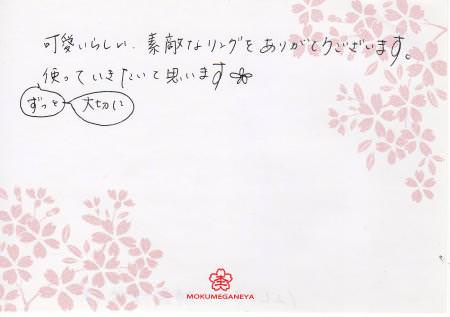 可愛いらしい、素敵なリングをありがとうございます。
使っていきたいと思います
ずっと 大切に
MOKUMEGANEYA